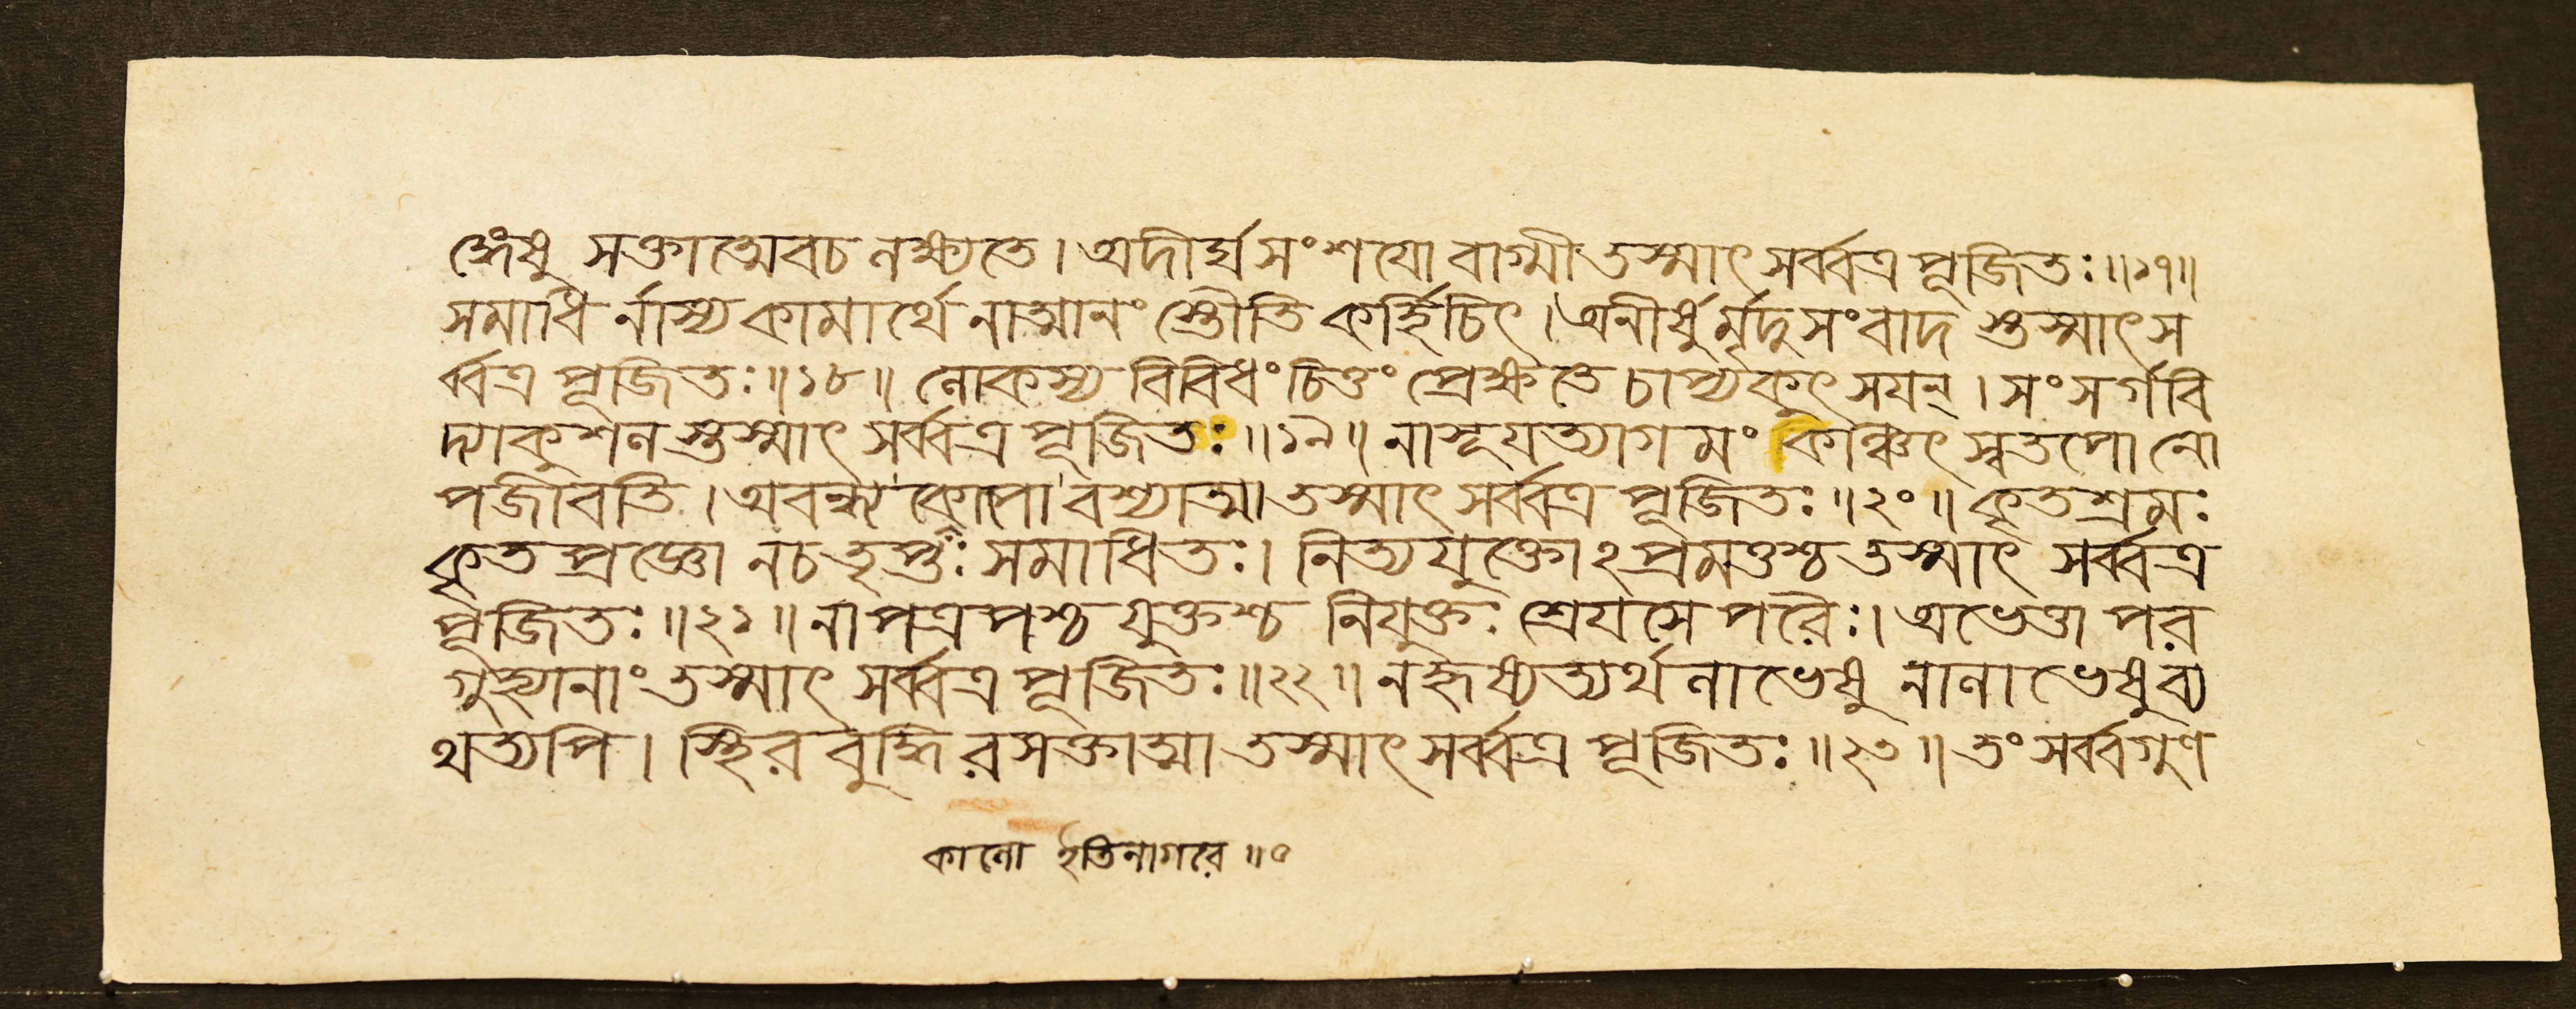 ঙ্গেষু সক্তাত্মেবচ লক্ষ্যতে। অদীর্ঘসংশযো বাগ্মী তস্মাৎ সর্ব্বত্র পূজিতঃ॥১৭॥
সমাধি র্নাস্য কামার্থে নাত্মানং স্তৌতি কর্হিচিৎ। অনীর্ষু র্মৃদুসংবাদ স্তস্মাৎ স
র্ব্বত্র পূজিতঃ॥১৮॥ লোকস্য বিবিধং চিত্তং প্রেক্ষতে চাপ্যকুৎসযন্। সংসর্গবি
দ্যাকুশল স্তস্মাৎ সর্ব্বত্র পূজিতঃ॥১৯॥ নাসূযত্যাগমং কঞ্চিৎ স্বতপো নো
পজীবতি। অবন্ধ্য কোপা বশ্যাত্মা তস্মাৎ সর্ব্বত্র পূজিতঃ॥২০॥ কৃতশ্রমঃ
কৃতপ্রজ্ঞো নচ তৃপ্তঃ সমাধিতঃ। নিত্যযুক্তোঽপ্রমত্তশ্চ তস্মাৎ সর্ব্বত্র
পূজিতঃ॥২১॥ নাপত্রপশ্চ যুক্তশ্চ নিযুক্তঃ শ্রেযসে পরৈঃ। অভেত্তা পর
গুহ্যানাং তস্মাৎ সর্ব্বত্র পূজিতঃ॥২২॥ নহৃষ্যত্যর্থলাভেষু নালাভেষু ব্য
থত্যপি। স্থিরবুদ্ধিরসক্তাত্মা তস্মাৎ সর্ব্বত্র পূজিতঃ॥২৩॥ তং সর্ব্বগুণ
কালো ইতিনাগরে॥